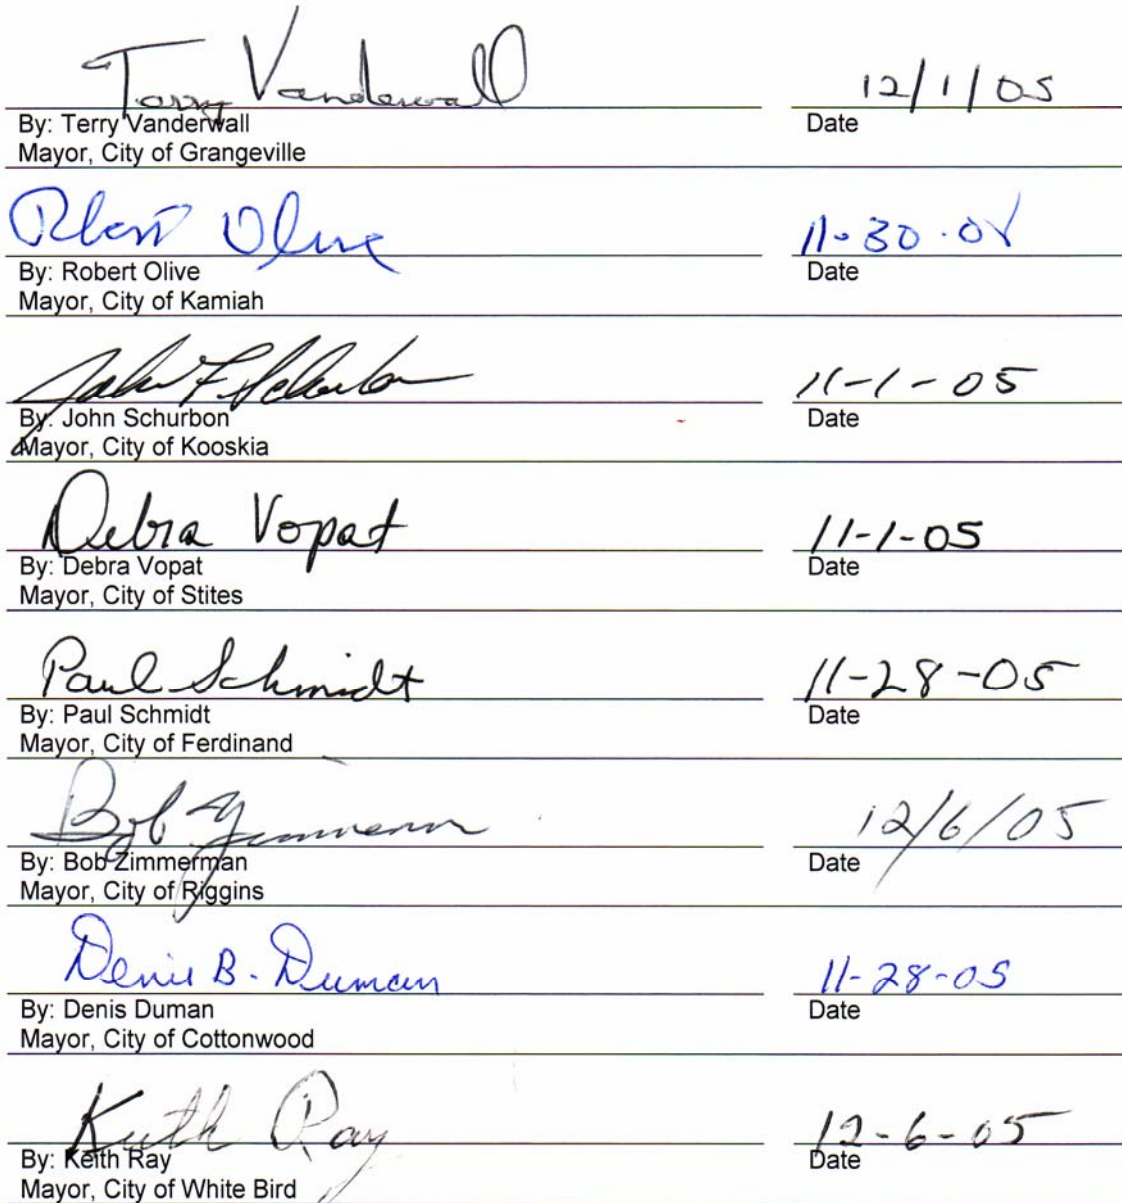 Terry Vanderwall 12/1/05
By: Terry Vanderwall Date
Mayor, City of Grangeville
Robert Olive 11-30-05
By: Robert Olive Date
Mayor, City of Kamiah
John F. Schurbon 11-1-05
By: John Schurbon Date
Mayor, City of Kooskia
Debra Vopat 11-1-05
By: Debra Vopat Date
Mayor, City of Stites
Paul Schmidt 11-28-05
By: Paul Schmidt Date
Mayor, City of Ferdinand
Bob Zimmerman 12/6/05
By: Bob Zimmerman Date
Mayor, City of Riggins
Denis B. Duman 11-28-05
By: Denis Duman Date
Mayor, City of Cottonwood
Keith Ray 12-6-05
By: Keith Ray Date
Mayor, City of White Bird